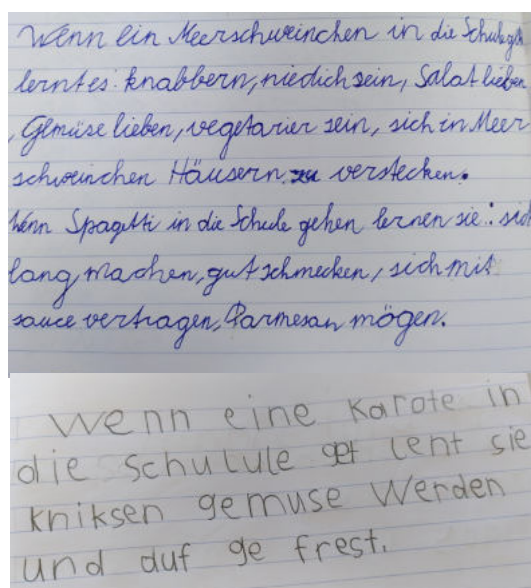 Wenn ein Meerschweinchen in die Schule geht
lernt es: knabbern, niedich sein, Salat lieben
, Gemüse lieben, vegetarier sein, sich in Meer
schweinchen Häusern verstecken.
Wenn Spagetti in die Schule gehen lernen sie: sich
lang machen, gut schmecken, sich mit
sauce vertragen, Parmesan mögen.
Wenn eine Karote in
die schulule get lent sie
kniksen gemuse Werden
und auf ge frest.